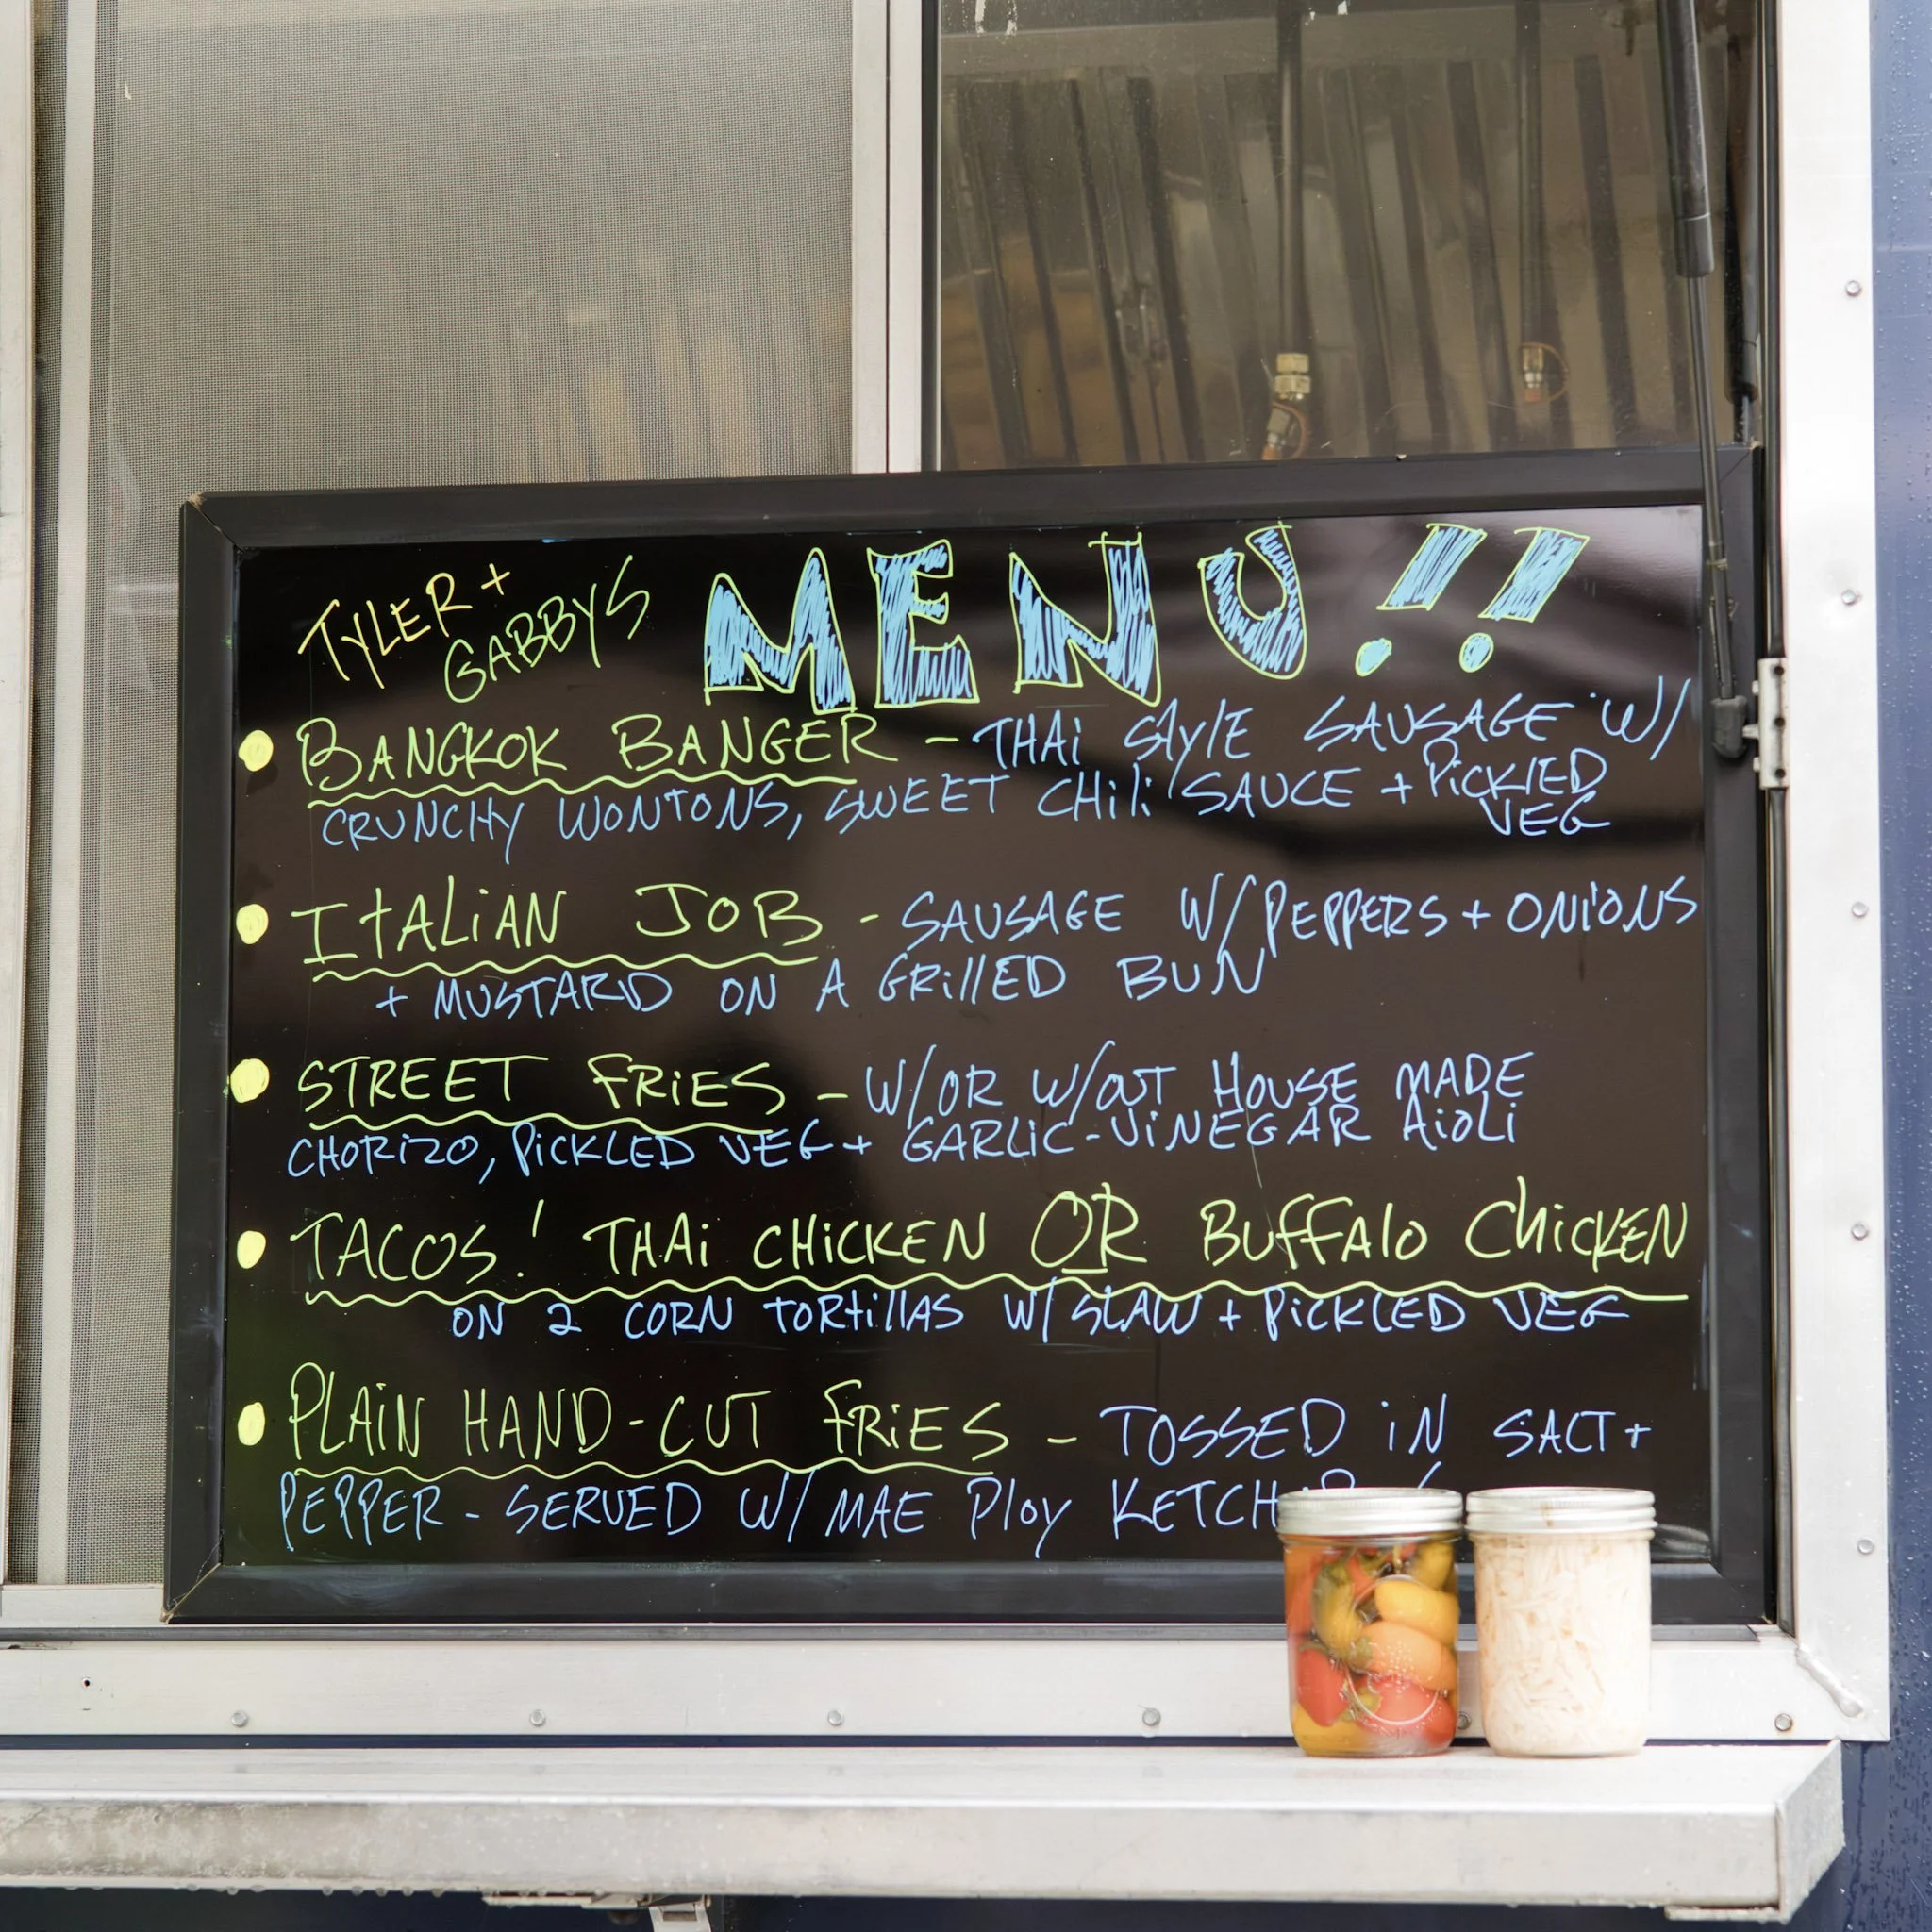 TYLER +
GABBYS
MENU!!
BANGKOK BANGER - THAi StylE SAUSAGE W/
CRUNCHY WONTONS, SWEET CHili SAUCE + PiCKLED
VEG
ItALiAN JOB - SAUSAGE W/ PEPPERS + ONiONS
+ MUSTARD ON A GRillED BUN
STREET FRiES - W/OR W/OUT HOUSE MADE
CHORIZO, PiCKLED VEG + GARLiC-ViNEGAR AiOLi
TACOS! THAi CHiCKEN OR BUFFAlO CHiCKEN
ON 2 CORN tORtillAS W/ SLAW + PiCKLED VEG
PLAiN HAND-CUT FRiES - TOSSED iN SALT +
PEPPER - SERVED W/ MAE Ploy